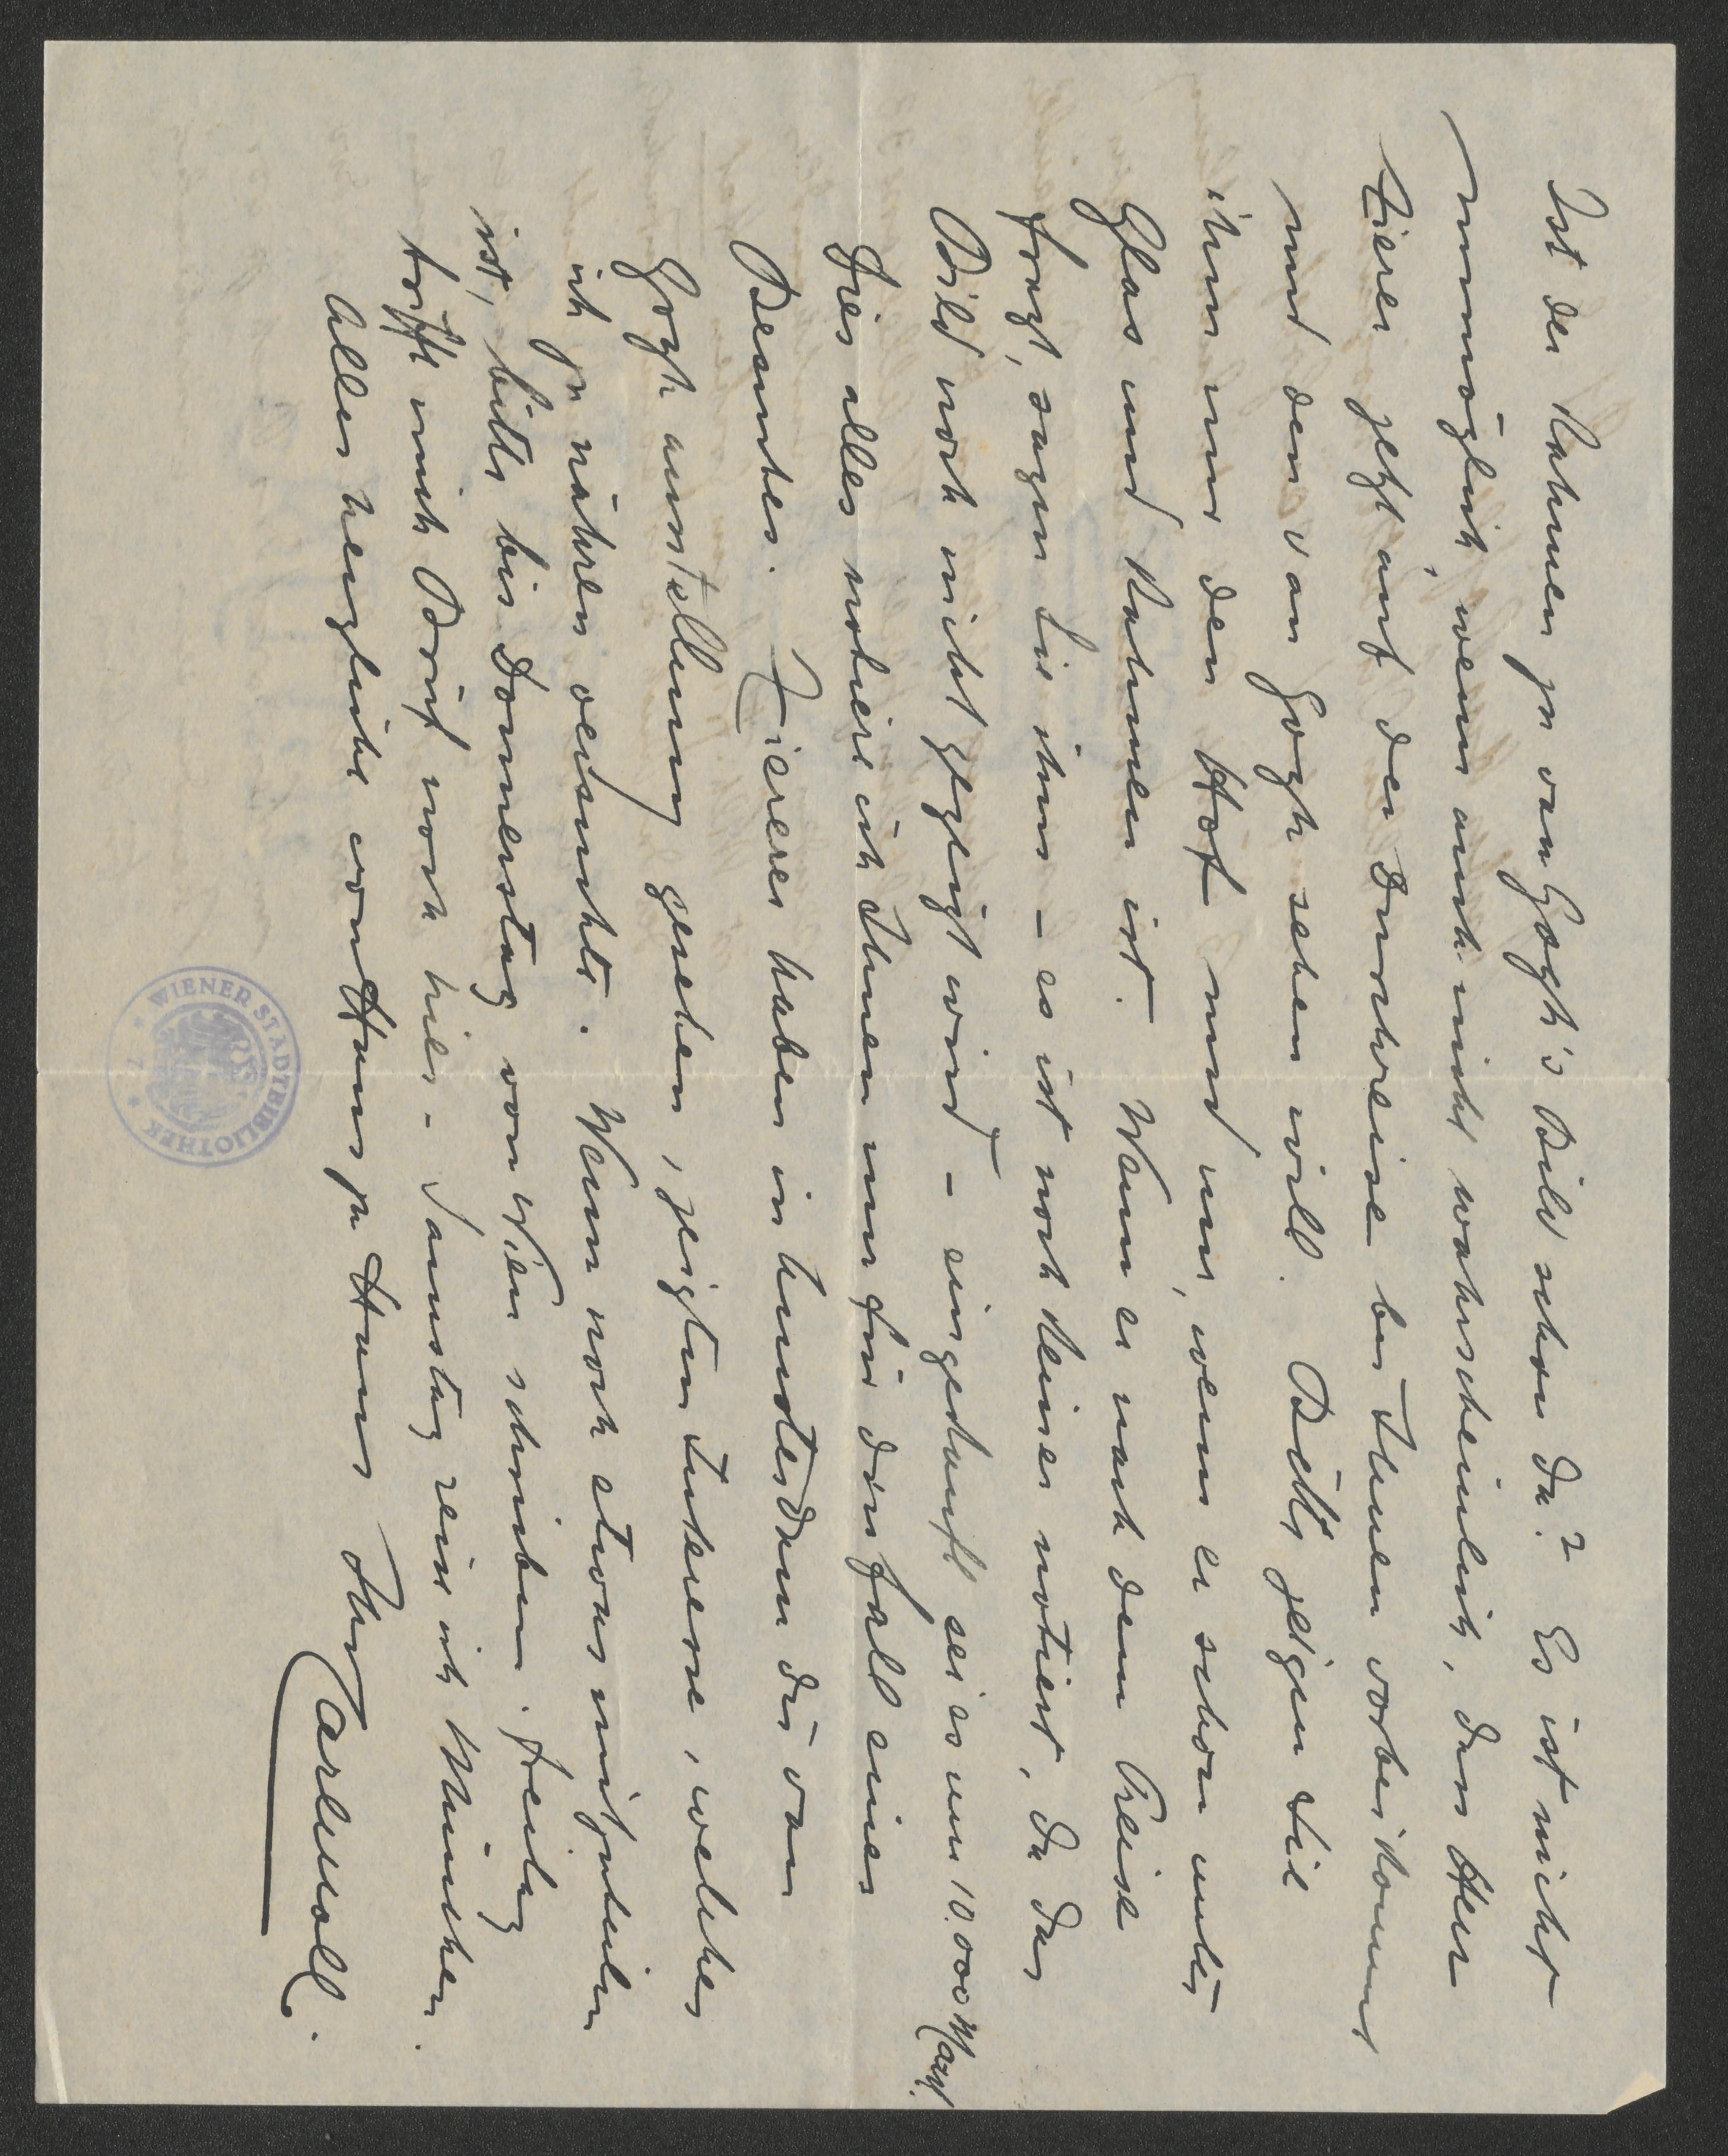 Ist der Rahmen zu van Gogh's Bild schon da? Es ist nicht
unmöglich, wenn auch nicht wahrscheinlich, dass Herr
Zierer jetzt auf der Durchreise bei Ihnen vorbeikommt
und den van Gogh sehen will. Bitte zeigen Sie
ihm nur den Hof und nur, wenn er schon unter
Glas und Rahmen ist. Wenn er nach dem Preise
fragt, sagen Sie ihm – es ist noch keiner notiert, da das
Bild noch nicht gezeigt wird – eingekauft sei es um 10.000 Mark.
Dies alles notiere ich Ihnen nur für den Fall eines
Besuches. Zierers haben in Amsterdam die van
Gogh ausstellung gesehen, zeigten Interesse, welches
ich zu nähren versuchte. Wenn noch etwas mitzuteilen
ist, bitte bis Donnerstag von Wien schreiben. Freitag
trifft mich Brief noch hier – Samstag reise ich München.
Alles herzliche von Haus zu Haus Ihr Carl Moll.
WIENER STADTBIBLIOTHEK
* 7 *